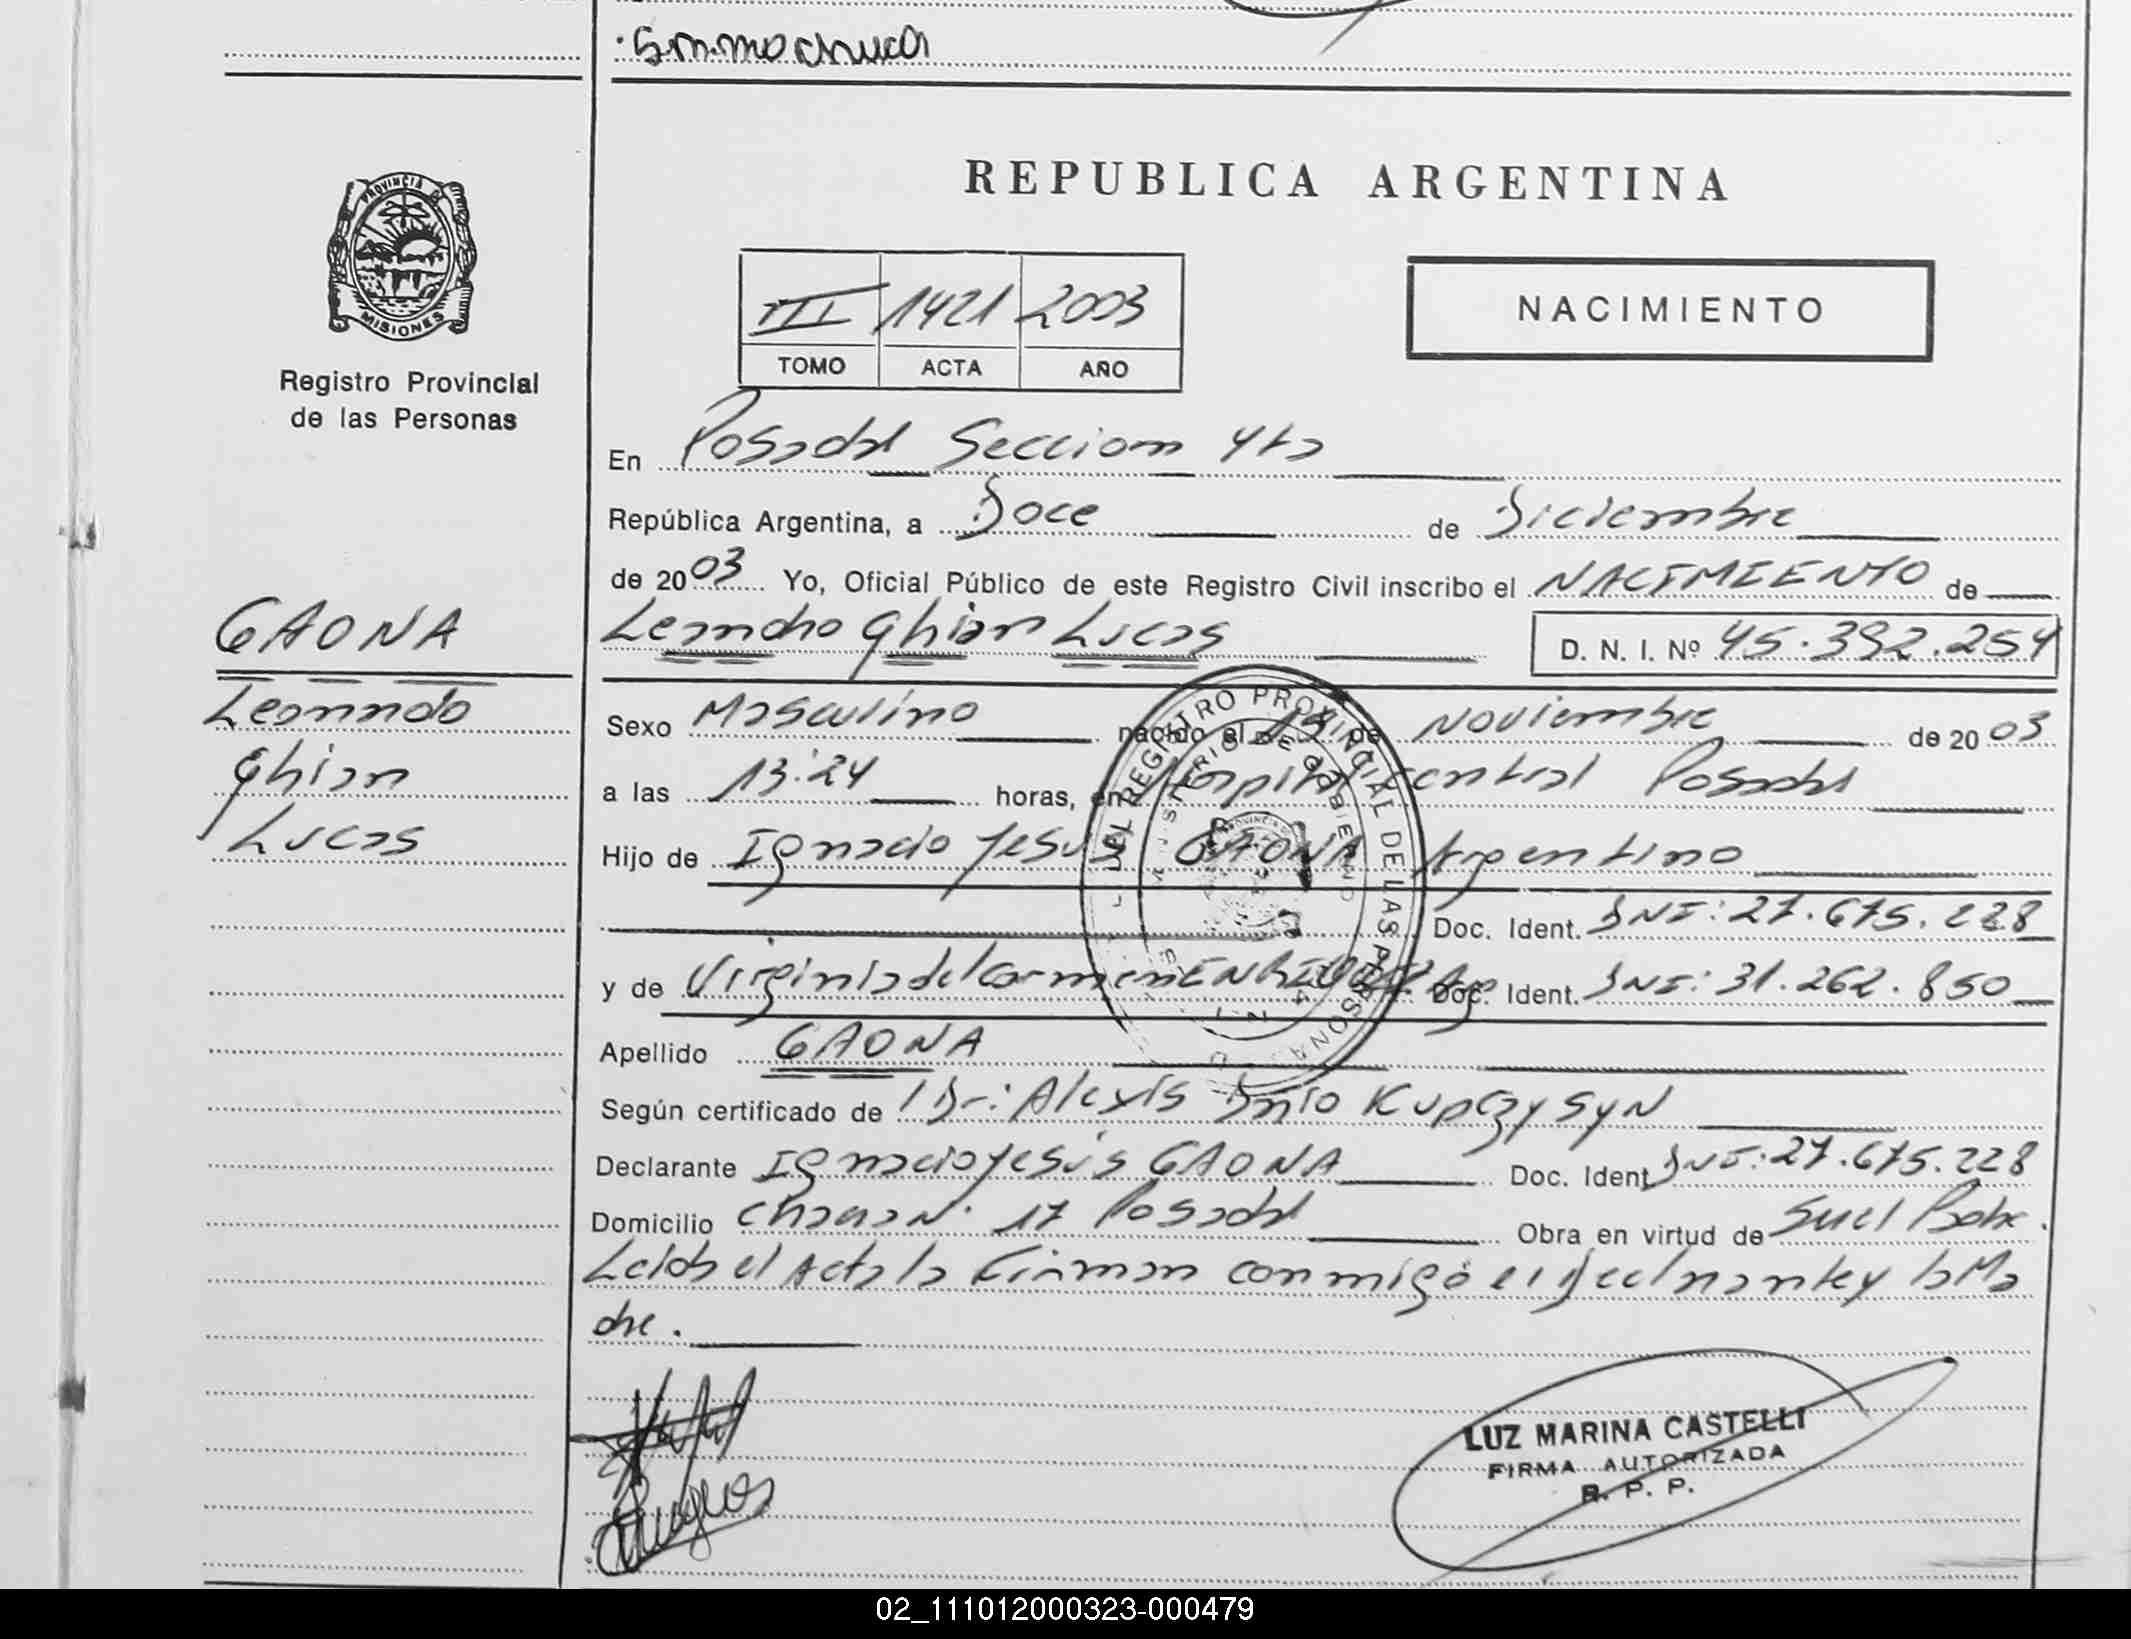 S.m.machuca
REPUBLICA ARGENTINA
PROVINCIA DE
MISIONES
Registro Provincial
de las Personas
III 1421 2003
TOMO ACTA AÑO
NACIMIENTO
En Posadas Seccion 4ta
República Argentina, a Doce de Diciembre
de 2003 Yo, Oficial Público de este Registro Civil inscribo el NACIMIENTO de
Leandro Ghian Lucas D. N. I. Nº 45.392.254
GAONA
Leanndo
Ghian
Lucas
Sexo Masculino nacido el de Noviembre de 2003
a las 13:24 horas, en Hospital central Posadas
Hijo de Ignacio Jesús GAONA Argentino
Doc. Ident. DNI: 27.675.228
y de Virginia del Carmen Doc. Ident. DNI: 31.262.850
Apellido GAONA
Según certificado de Dr: Alexis Kupczysyn
Declarante Ignacio Jesús GAONA Doc. Ident DNI: 27.675.228
Domicilio Chacra N° 17 Posadas Obra en virtud de
Leida el Acta la Firman conmigo el Declnante y la Ma
dre.
DEL REGISTRO PROVINCIAL DE LAS PERSONAS
LUZ MARINA CASTELLI
FIRMA AUTORIZADA
R. P. P.
02_111012000323-000479